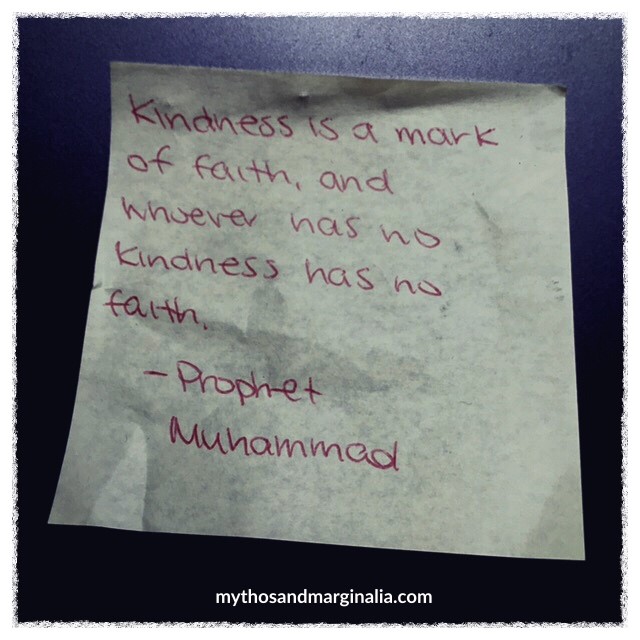 Kindness is a mark
of faith, and
whoever has no
kindness has no
faith.
- Prophet
Muhammad
mythosandmarginalia.com